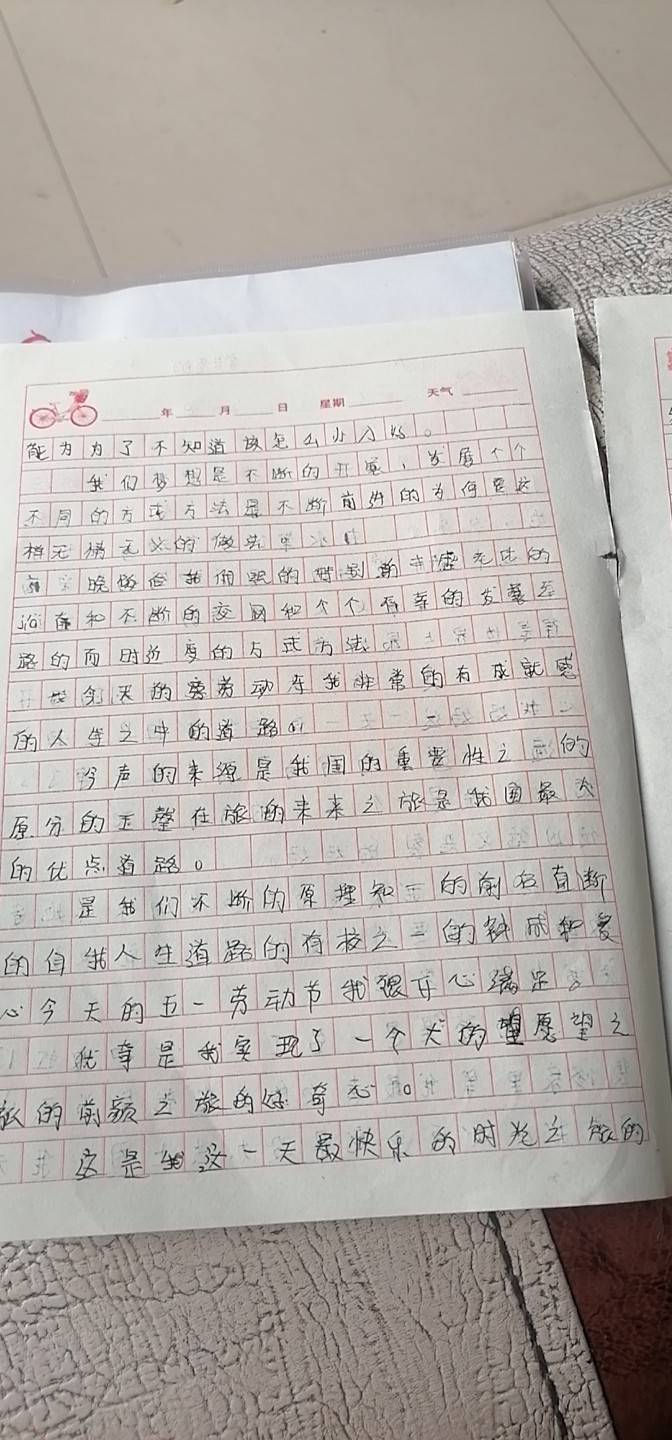 年 月 日 星期 天气
能为为了不知道该怎么办入好。
我们梦想是不断的开宽，发展个个
不同的方或方法是不断前进的为何要这
样无情无义的做
晚饭后我们的时到前非虚无比的
和不断的交网和个个有幸的发展之
路的而时近度的方式方法
今天的劳动有我非常的有成就感
的人生之中的道路。
今声的来源是我国的重要性之的
原分的五整在旅的未来之旅是我国最大
的优点道路。
是我们不断的原理和正的前后直断
的自我人生道路的有校之一的钟成和爱
心今天的五一劳动节我很开心满足
就算是我实现了一个大的愿望之
旅的前额之旅的好奇心。
这是我这一天最快乐的时光之旅的